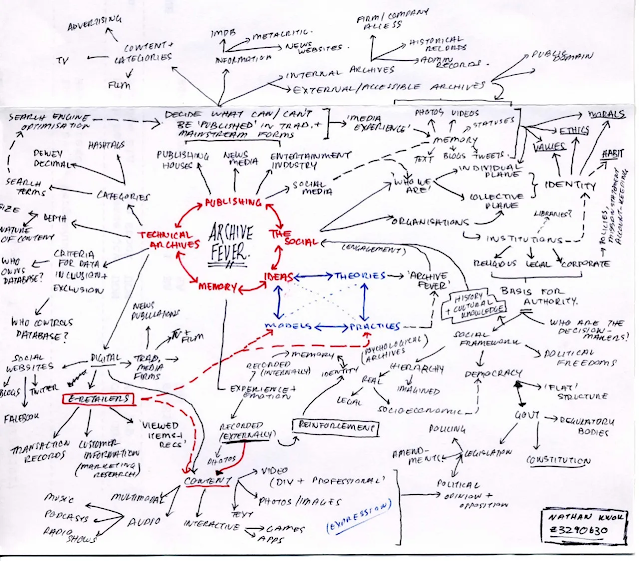 ADVERTISING
TV
CONTENT +
CATEGORIES
FILM
IMDB
METACRITIC.
NEWS
WEBSITES.
INFORMATION
FIRM/COMPANY
ACCESS
HISTORICAL
RECORDS
ADMIN
RECORDS.
PUBLIC
DOMAIN
INTERNAL ARCHIVES
EXTERNAL/ACCESSIBLE ARCHIVES
SEARCH ENGINE
OPTIMISATION
DECIDE WHAT CAN/CAN'T
BE 'PUBLISHED' IN TRAD. +
MAINSTREAM FORMS
'MEDIA
EXPERIENCE'
PHOTOS
VIDEOS
STATUSES
MEMORY
TEXT
BLOGS
TWEETS
MORALS
ETHICS
VALUES
HABIT
IDENTITY
HASHTAGS
DEWEY
DECIMAL
SEARCH
TERMS
CATEGORIES
PUBLISHING
HOUSES
NEWS
MEDIA
ENTERTAINMENT
INDUSTRY
SOCIAL
MEDIA
WHO WE
ARE
INDIVIDUAL
PLANE
COLLECTIVE
PLANE
ORGANISATIONS
LIBRARIES?
INSTITUTIONS
RELIGIOUS
LEGAL
CORPORATE
SIZE
DEPTH
NATURE
OF CONTENT
WHO
OWNS
DATABASE?
CRITERIA
FOR DATA
INCLUSION +
EXCLUSION
WHO CONTROLS
DATABASE?
PUBLISHING
TECHNICAL
ARCHIVES
ARCHIVE
FEVER.
THE
SOCIAL
IDEAS
MEMORY
(ENGAGEMENT)
THEORIES
'ARCHIVE
FEVER'
MODELS
PRACTICES
HISTORY
+ CULTURAL
KNOWLEDGE
BASIS FOR
AUTHORITY.
WHO ARE THE
DECISION-
MAKERS?
SOCIAL
FRAMEWORK
POLITICAL
FREEDOMS
DEMOCRACY
'FLAT'
STRUCTURE
GOVT
REGULATORY
BODIES
CONSTITUTION
LEGISLATION
POLICING
AMEND-
MENTS
POLITICAL
OPINION +
OPPOSITION
NEWS
PUBLICATIONS
TV +
FILM
TRAD.
MEDIA
FIRMS
DIGITAL
SOCIAL
WEBSITES
BLOGS
TWITTER
FACEBOOK
E-RETAILERS
TRANSACTION
RECORDS
CUSTOMER
INFORMATION
(MARKETING
RESEARCH)
'VIEWED
ITEMS +
RECS'
MEMORY
RECORDED
(INTERNALLY)
(PSYCHOLOGICAL
ARCHIVES)
IDENTITY
HIERARCHY
REAL
IMAGINED
LEGAL
SOCIOECONOMIC
EXPERIENCE +
EMOTION
RECORDED
(EXTERNALLY)
REINFORCEMENT
PHOTOS
CONTENT
VIDEO
(DIV + PROFESSIONAL)
PHOTOS/IMAGES
TEXT
INTERACTIVE
GAMES
APPS
(EXPRESSION)
MULTIMEDIA
AUDIO
MUSIC
PODCASTS
RADIO
SHOWS
NATHAN KWOK
Z3290630